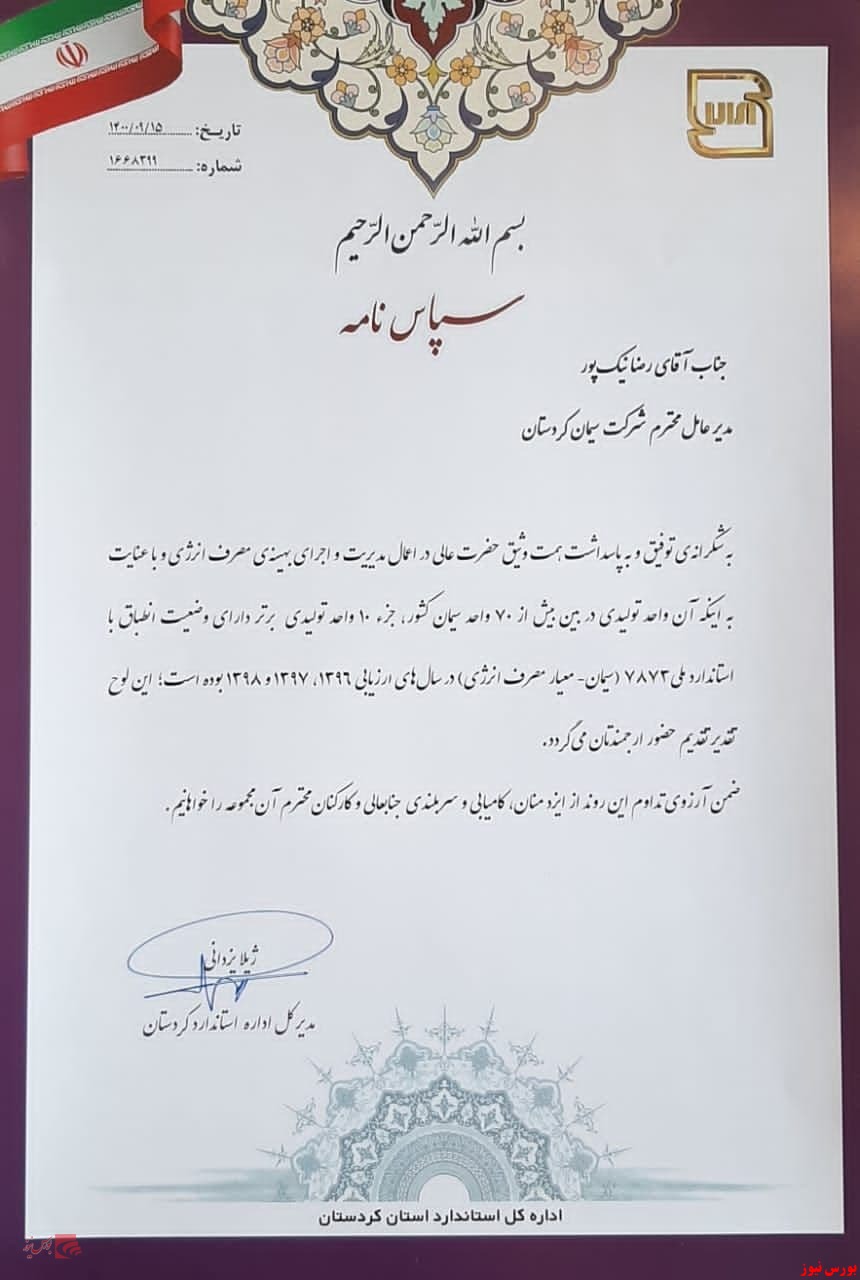 تاریـخ: ۱۴۰۰/۰۹/۱۵
شماره: ۱۶۶۸۳۹۹
بسم الله الرّحمن الرّحیم
سپاس نامه
جناب آقای رضا نیک پور
مدیر عامل محترم شرکت سیمان کردستان
به شکرانه‌ی توفیق و به پاسداشت همت وثیق حضرت عالی در اعمال مدیریت و اجرای بهینه‌ی مصرف انرژی و با عنایت
به اینکه آن واحد تولیدی در بین بیش از ۷۰ واحد سیمان کشور، جزء ۱۰ واحد تولیدی برتر دارای وضعیت انطباق با
استاندارد ملی ۷۸۷۳ (سیمان- معیار مصرف انرژی) در سال های ارزیابی ۱۳۹۶، ۱۳۹۷ و ۱۳۹۸ بوده است؛ این لوح
تقدیر تقدیم حضور ارجمندتان می گردد.
ضمن آرزوی تداوم این روند از ایزد منان، کامیابی و سربلندی جنابعالی و کارکنان محترم آن مجموعه را خواهانیم.
ژیلا یزدانی
مدیر کل اداره استاندارد کردستان
اداره کل استاندارد استان کردستان
بورس نیوز
بورس نیوز